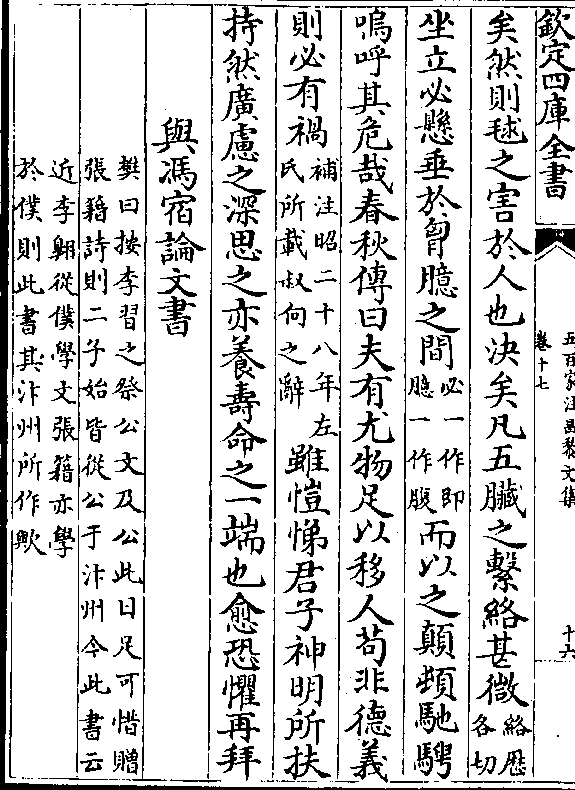 欽定四庫全書
五百家注昌黎文集
卷十七
十六
矣然則毬之害於人也決矣凡五臟之繫絡甚微絡歷各切
坐立必懸垂於胷臆之間必一作即臆一作腹而以之顛頓馳騁
嗚呼其危哉春秋傳曰夫有尤物足以移人苟非德義
則必有禍補注昭二十八年左氏所載叔向之辭雖愷悌君子神明所扶
持然廣慮之深思之亦養壽命之一端也愈恐懼再拜
與馮宿論文書
樊曰按李習之祭公文及公此日足可惜贈
張籍詩則二子始皆從公于汴州今此書云
近李翺從僕學文張籍亦學
於僕則此書其汴州所作歟